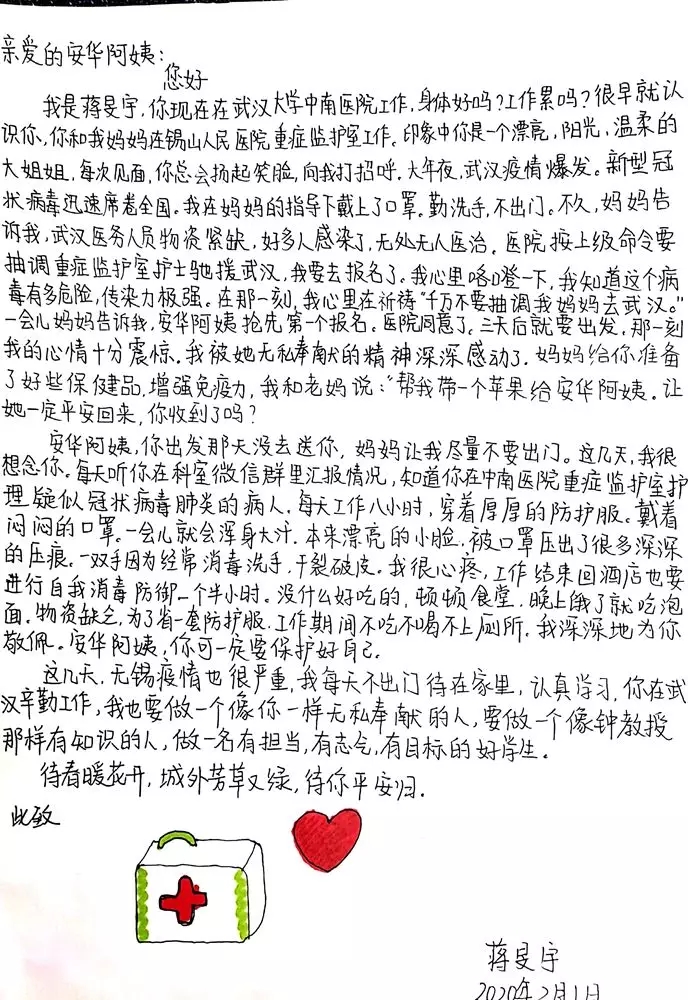 亲爱的安华阿姨：
您好
我是蒋旻宇，你现在在武汉大学中南医院工作，身体好吗？工作累吗？很早就认
识你，你和我妈妈在锡山人民医院重症监护室工作。印象中你是一个漂亮，阳光，温柔的
大姐姐，每次见面，你总会扬起笑脸，向我打招呼。大年夜，武汉疫情爆发。新型冠
状病毒迅速席卷全国。我在妈妈的指导下戴上了口罩。勤洗手，不出门。不久，妈妈告
诉我，武汉医务人员物资紧缺，好多人感染了，无处无人医治。医院按上级命令要
抽调重症监护室护士驰援武汉，我要去报名了。我心里咯噔一下，我知道这个病
毒有多危险，传染力极强。在那一刻，我心里在祈祷“千万不要抽调我妈妈去武汉。”
一会儿妈妈告诉我，安华阿姨抢先第一个报名。医院同意了，三天后就要出发，那一刻
我的心情十分震惊。我被她无私奉献的精神深深感动了。妈妈给你准备
了好些保健品，增强免疫力，我和老妈说：“帮我带一个苹果给安华阿姨。让
她一定平安回来，你收到了吗？
安华阿姨，你出发那天没去送你，妈妈让我尽量不要出门。这几天，我很
想念你。每天听你在科室微信群里汇报情况，知道你在中南医院重症监护室护
理疑似冠状病毒肺类的病人。每天工作八小时，穿着厚厚的防护服。戴着
闷闷的口罩。一会儿就会浑身大汗。本来漂亮的小脸，被口罩压出了很多深深
的压痕。一双手因为经常消毒洗手，干裂破皮。我很心疼，工作结束回酒店也要
进行自我消毒防御一个半小时。没什么好吃的，顿顿食堂，晚上饿了就吃泡
面。物资缺乏，为了省一套防护服，工作期间不吃不喝不上厕所。我深深地为你
敬佩。安华阿姨，你可一定要保护好自己。
这几天，无锡疫情也很严重，我每天不出门待在家里，认真学习，你在武
汉辛勤工作，我也要做一个像你一样无私奉献的人，要做一个像钟教授
那样有知识的人，做一名有担当，有志气，有目标的好学生。
待春暖花开，城外芳草又绿，待你平安归。
此致
蒋旻宇
2020年2月1日